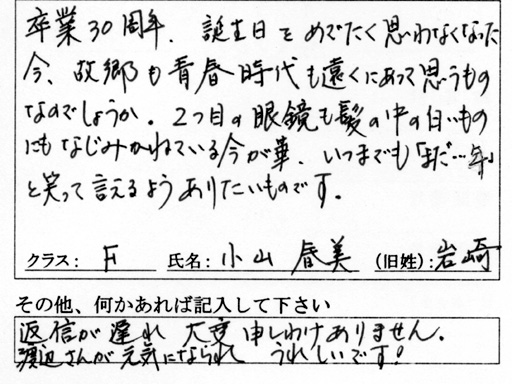 卒業30周年、誕生日をめでたく思わなくなった
今、故郷も青春時代も遠くにあって思うもの
なのでしょうか。2つ目の眼鏡も髪の中の白いもの
にもなじみかねている今が華、いつまでも「まだ…年」
と笑って言えるようありたいものです。
クラス: F 氏名: 小山 春美 (旧姓): 岩崎
その他、何かあれば記入して下さい
返信が遅れ 大変申しわけありません。
渡辺さんが元気になられ うれしいです!